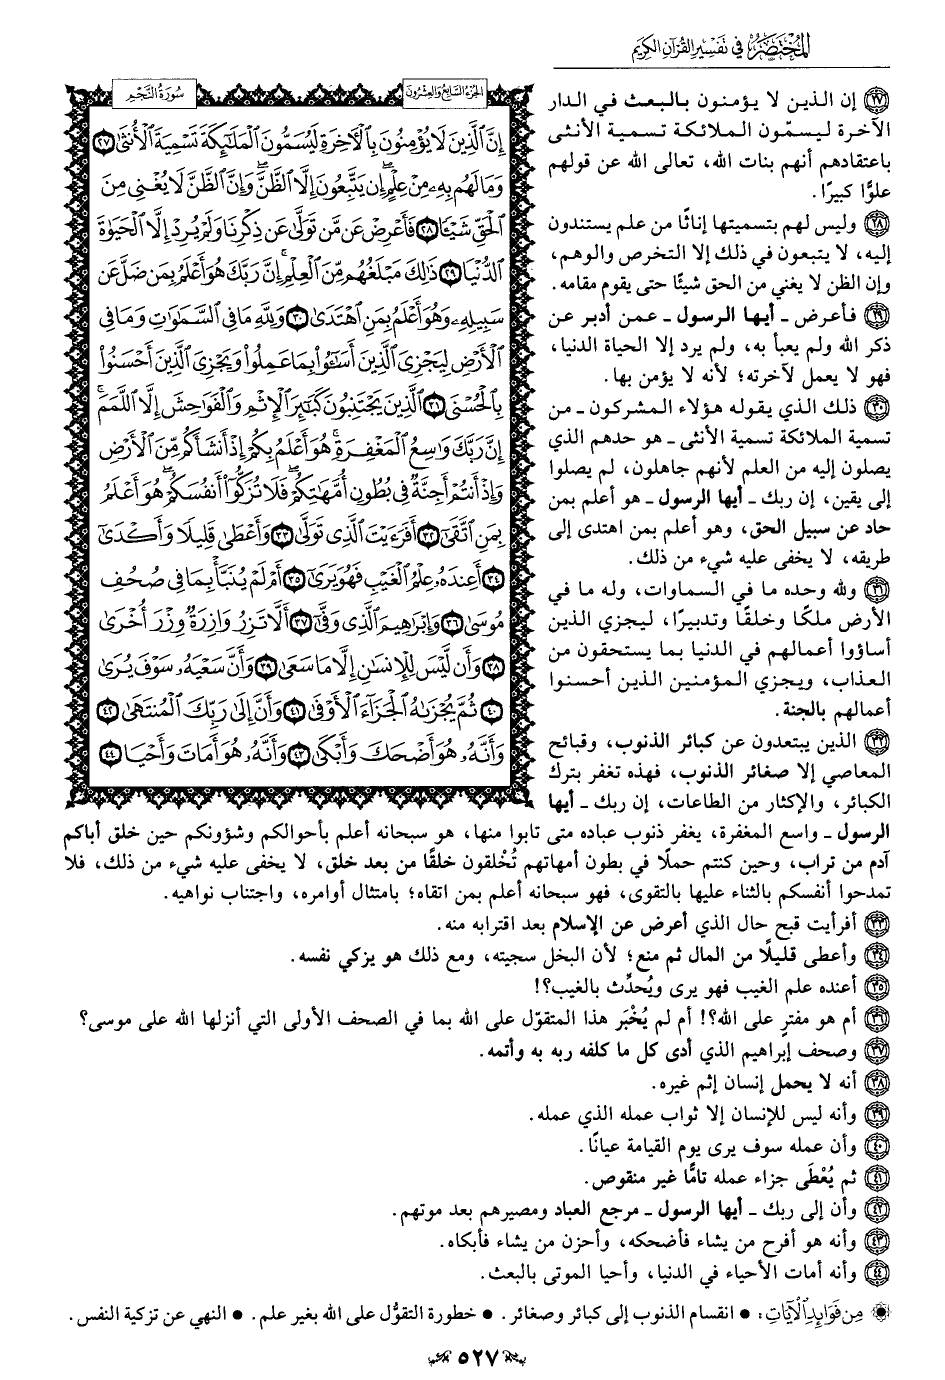 المختصر في تفسير القرآن الكريم
سورة النجم
الجزء السابع والعشرون
إِنَّ ٱلَّذِينَ لَا يُؤْمِنُونَ بِٱلْأٓخِرَةِ لَيُسَمُّونَ ٱلْمَلَٰٓئِكَةَ تَسْمِيَةَ ٱلْأُنثَىٰ ٢٧
وَمَا لَهُم بِهِۦ مِنْ عِلْمٍ ۖ إِن يَتَّبِعُونَ إِلَّا ٱلظَّنَّ ۖ وَإِنَّ ٱلظَّنَّ لَا يُغْنِى مِنَ
ٱلْحَقِّ شَيْـًٔا ٢٨ فَأَعْرِضْ عَن مَّن تَوَلَّىٰ عَن ذِكْرِنَا وَلَمْ يُرِدْ إِلَّا ٱلْحَيَوٰةَ
ٱلدُّنْيَا ٢٩ ذَٰلِكَ مَبْلَغُهُم مِّنَ ٱلْعِلْمِ ۚ إِنَّ رَبَّكَ هُوَ أَعْلَمُ بِمَن ضَلَّ عَن
سَبِيلِهِۦ وَهُوَ أَعْلَمُ بِمَنِ ٱهْتَدَىٰ ٣٠ وَلِلَّهِ مَا فِى ٱلسَّمَٰوَٰتِ وَمَا فِى
ٱلْأَرْضِ لِيَجْزِىَ ٱلَّذِينَ أَسَٰٓـُٔوا۟ بِمَا عَمِلُوا۟ وَيَجْزِىَ ٱلَّذِينَ أَحْسَنُوا۟
بِٱلْحُسْنَى ٣١ ٱلَّذِينَ يَجْتَنِبُونَ كَبَٰٓئِرَ ٱلْإِثْمِ وَٱلْفَوَٰحِشَ إِلَّا ٱللَّمَمَ ۚ
إِنَّ رَبَّكَ وَٰسِعُ ٱلْمَغْفِرَةِ ۚ هُوَ أَعْلَمُ بِكُمْ إِذْ أَنشَأَكُم مِّنَ ٱلْأَرْضِ
وَإِذْ أَنتُمْ أَجِنَّةٌ فِى بُطُونِ أُمَّهَٰتِكُمْ ۖ فَلَا تُزَكُّوٓا۟ أَنفُسَكُمْ ۖ هُوَ أَعْلَمُ
بِمَنِ ٱتَّقَىٰٓ ٣٢ أَفَرَءَيْتَ ٱلَّذِى تَوَلَّىٰ ٣٣ وَأَعْطَىٰ قَلِيلًا وَأَكْدَىٰٓ
٣٤ أَعِندَهُۥ عِلْمُ ٱلْغَيْبِ فَهُوَ يَرَىٰٓ ٣٥ أَمْ لَمْ يُنَبَّأْ بِمَا فِى صُحُفِ
مُوسَىٰ ٣٦ وَإِبْرَٰهِيمَ ٱلَّذِى وَفَّىٰٓ ٣٧ أَلَّا تَزِرُ وَازِرَةٌ وِزْرَ أُخْرَىٰ
٣٨ وَأَن لَّيْسَ لِلْإِنسَٰنِ إِلَّا مَا سَعَىٰ ٣٩ وَأَنَّ سَعْيَهُۥ سَوْفَ يُرَىٰ
٤٠ ثُمَّ يُجْزَىٰهُ ٱلْجَزَآءَ ٱلْأَوْفَىٰ ٤١ وَأَنَّ إِلَىٰ رَبِّكَ ٱلْمُنتَهَىٰ ٤٢
وَأَنَّهُۥ هُوَ أَضْحَكَ وَأَبْكَىٰ ٤٣ وَأَنَّهُۥ هُوَ أَمَاتَ وَأَحْيَا ٤٤
٢٧ إن الذين لا يؤمنون بالبعث في الدار
الآخرة ليسمّون الملائكة تسمية الأنثى
باعتقادهم أنهم بنات الله، تعالى الله عن قولهم
علوًّا كبيرًا.
٢٨ وليس لهم بتسميتها إناثًا من علم يستندون
إليه، لا يتبعون في ذلك إلا التخرص والوهم،
وإن الظن لا يغني من الحق شيئًا حتى يقوم مقامه.
٢٩ فأعرض ـ أيها الرسول ـ عمن أدبر عن
ذكر الله ولم يعبأ به، ولم يرد إلا الحياة الدنيا،
فهو لا يعمل لآخرته؛ لأنه لا يؤمن بها.
٣٠ ذلك الذي يقوله هؤلاء المشركون ـ من
تسمية الملائكة تسمية الأنثى ـ هو حدهم الذي
يصلون إليه من العلم لأنهم جاهلون، لم يصلوا
إلى يقين، إن ربك ـ أيها الرسول ـ هو أعلم بمن
حاد عن سبيل الحق، وهو أعلم بمن اهتدى إلى
طريقه، لا يخفى عليه شيء من ذلك.
٣١ ولله وحده ما في السماوات، وله ما في
الأرض ملكًا وخلقًا وتدبيرًا، ليجزي الذين
أساؤوا أعمالهم في الدنيا بما يستحقون من
العذاب، ويجزي المؤمنين الذين أحسنوا
أعمالهم بالجنة.
٣٢ الذين يبتعدون عن كبائر الذنوب، وقبائح
المعاصي إلا صغائر الذنوب، فهذه تغفر بترك
الكبائر، والإكثار من الطاعات، إن ربك ـ أيها
الرسول ـ واسع المغفرة، يغفر ذنوب عباده متى تابوا منها، هو سبحانه أعلم بأحوالكم وشؤونكم حين خلق أباكم
آدم من تراب، وحين كنتم حملًا في بطون أمهاتهم تُخْلقون خلقًا من بعد خلق، لا يخفى عليه شيء من ذلك، فلا
تمدحوا أنفسكم بالثناء عليها بالتقوى، فهو سبحانه أعلم بمن اتقاه؛ بامتثال أوامره، واجتناب نواهيه.
٣٣ أفرأيت قبح حال الذي أعرض عن الإسلام بعد اقترابه منه.
٣٤ وأعطى قليلًا من المال ثم منع؛ لأن البخل سجيته، ومع ذلك هو يزكي نفسه.
٣٥ أعنده علم الغيب فهو يرى ويُحدِّث بالغيب؟!
٣٦ أم هو مفترٍ على الله؟! أم لم يُخْبَر هذا المتقوّل على الله بما في الصحف الأولى التي أنزلها الله على موسى؟
٣٧ وصحف إبراهيم الذي أدى كل ما كلفه ربه به وأتمه.
٣٨ أنه لا يحمل إنسان إثم غيره.
٣٩ وأنه ليس للإنسان إلا ثواب عمله الذي عمله.
٤٠ وأن عمله سوف يرى يوم القيامة عيانًا.
٤١ ثم يُعْطَى جزاء عمله تامًّا غير منقوص.
٤٢ وأن إلى ربك ـ أيها الرسول ـ مرجع العباد ومصيرهم بعد موتهم.
٤٣ وأنه هو أفرح من يشاء فأضحكه، وأحزن من يشاء فأبكاه.
٤٤ وأنه أمات الأحياء في الدنيا، وأحيا الموتى بالبعث.
من فوائد الآيات: • انقسام الذنوب إلى كبائر وصغائر. • خطورة التقوُّل على الله بغير علم. • النهي عن تزكية النفس.
٥٢٧